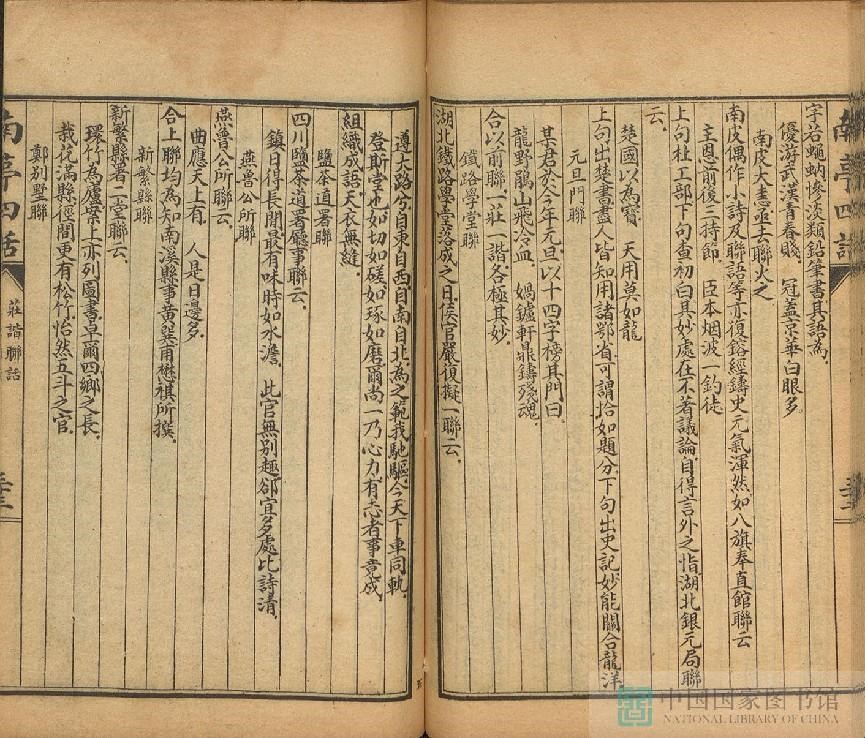 字若蠅蚋慘淡類鉛筆書其語為
優游武漢青春賤　冠蓋京華白眼多
南皮大恚亟去聯火之
南皮偶作小詩及聯語等亦復鎔經鑄史元氣渾然如八旗奉直館聯云
主恩前後三持節　臣本烟波一釣徒
上句杜工部下句查初白其妙處在不著議論自得言外之恉湖北銀元局聯
云
楚國以為寶　天用莫如龍
上句出楚書盡人皆知用諸鄂省可謂恰如題分下句出史記妙能關合龍洋
元旦門聯
某君於今年元旦以十四字榜其門曰
龍野鵑山飛冷血　媧鑪軒鼎鑄殘魂
合以前聯一莊一諧各極其妙
鐵路學堂聯
湖北鐵路學堂落成之日侯官嚴復擬一聯云
遵大路兮自東自西自南自北為之範我馳驅今天下車同軌
登斯堂也如切如磋如琢如磨爾尚一乃心力有志者事竟成
組織成語天衣無縫
鹽茶道署聯
四川鹽茶道署廳事聯云
鎮日得長閒最有味時如水澹　此官無別趣卻宜多處比詩清
燕魯公所聯
燕魯公所聯云
曲應天上有　人是日邊多
合上聯均為知南溪縣事黃巽甫懋祺所撰
新繁縣聯
新繁縣署二堂聯云
環竹為廬案上亦列圖書卓爾四鄉之長
栽花滿縣徑間更有松竹怡然五斗之官
鄭別墅聯
南亭四話
莊諧聯話
中国国家图书馆
NATIONAL LIBRARY OF CHINA